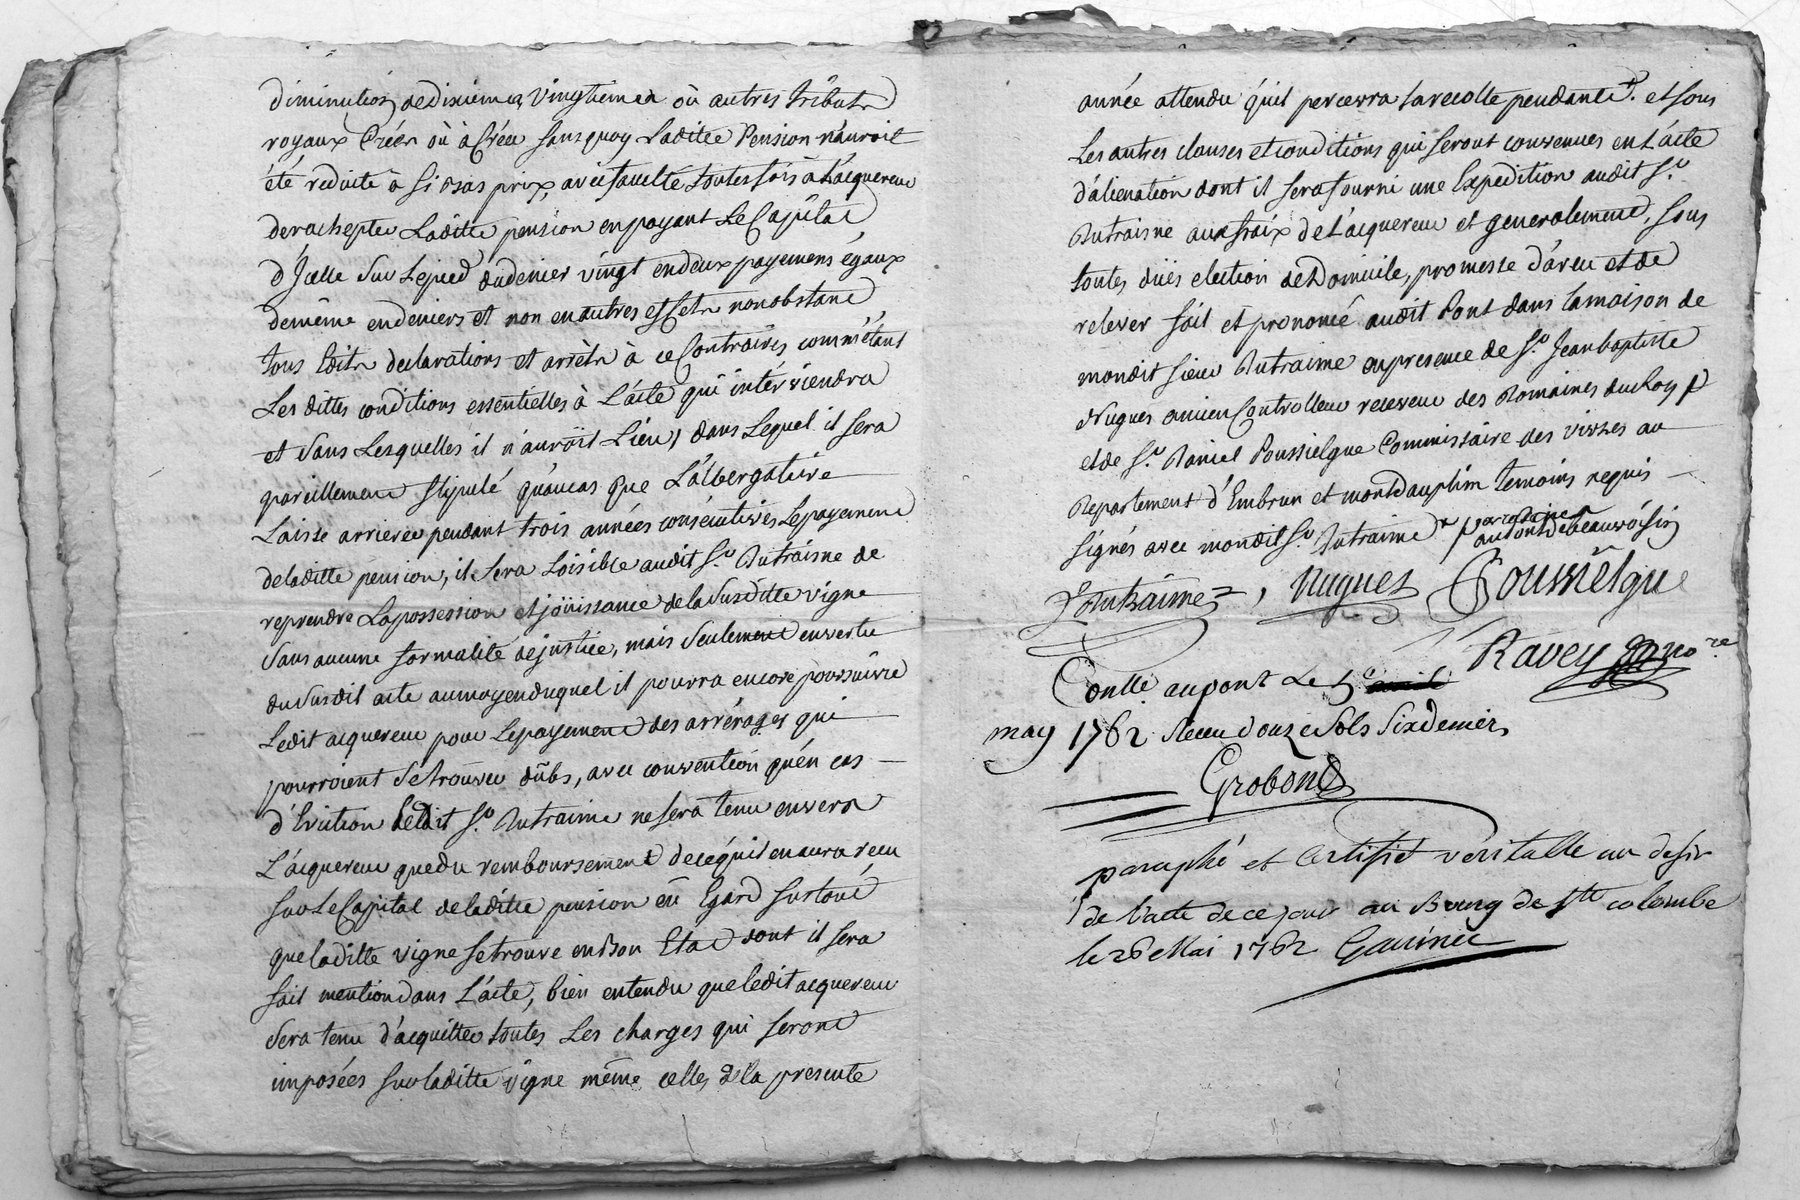 diminution de dixiemes, Vingtiemes où autres tributs
royaux Créés où à Créer sans quoy Laditte Pension n'auroit
été reduite à si bas prix, avec faculté toutes fois à L'acquereur
de rachepter Laditte pension en payant Le Capital
d'Jcelle Sur Le pied du denier vingt en deux payemens égaux
de même en deniers et non en autres effets nonobstant
tous Edits declarations et arrêts à ce Contraires comme étant
Les dittes conditions essentielles à L'acte qui intérviendra
et Sans Lesquelles il n'auroit Lieu, dans Lequel il sera
pareillement stipulé qu'aucas que L'albergataire
Laisse arrierer pendant trois années consécutives Le payement
de laditte pension, il Sera Loisible audit Sr. Autraisne de
reprendre La possession et joüissance de la Susditte vigne
Sans aucune formalité de justice, mais Seulement en vertu
du Susdit acte au moyen duquel il pourra encore poursuivre
Ledit acquereur pour Le payement des arrérages qui
pourroient Se trouver dûbs, avec convention qu'én cas
d'Eviction Ledit Sr. Autraisne ne sera tenu envers
L'acquereur que du remboursement de ce qu'il en aura recu
sur Le Capital de laditte pension eû Egard sur tout
que laditte vigne se trouve en Bon Etat dont il sera
fait mention dans L'acte, bien entendu que ledit acquereur
Sera tenu d'acquitter toutes Les charges qui seront
imposées sur laditte vigne même celles de la presente
année attendu qu'il percevra la recolte pendante. et sous
Les autres clauses et conditions qui seront convenues en L'acte
d'alienation dont il sera fourni une Expedition audit Sr.
Autraisne aux fraix de L'acquereur et generalement, sous
toutes dües election de Domicile, promesse d'aveu et de
relever fait et prononcé audit Pont dans la maison de
mondit sieur Autraisne en presence de Sr. Jean baptiste
Nugues ancien Controlleur receveur des Domaines du Roy
et de Sr. Daniel Poussielgue Commissaire des vivres au
Departement d'Embrun et montdauphin temoins requis
signés avec mondit Sr. Autraisne
au Pont de beauvoisin
Autraisne, Nugues Poussielgue
Ravey nore
Conllé au pont Le 5e
may 1762 Receu douze Sols Six deniers
Grobond
paraphé et Certifié veritable au desir
de l'acte de ce jour au Bourg de Ste colombe
le 26 Mai 1762